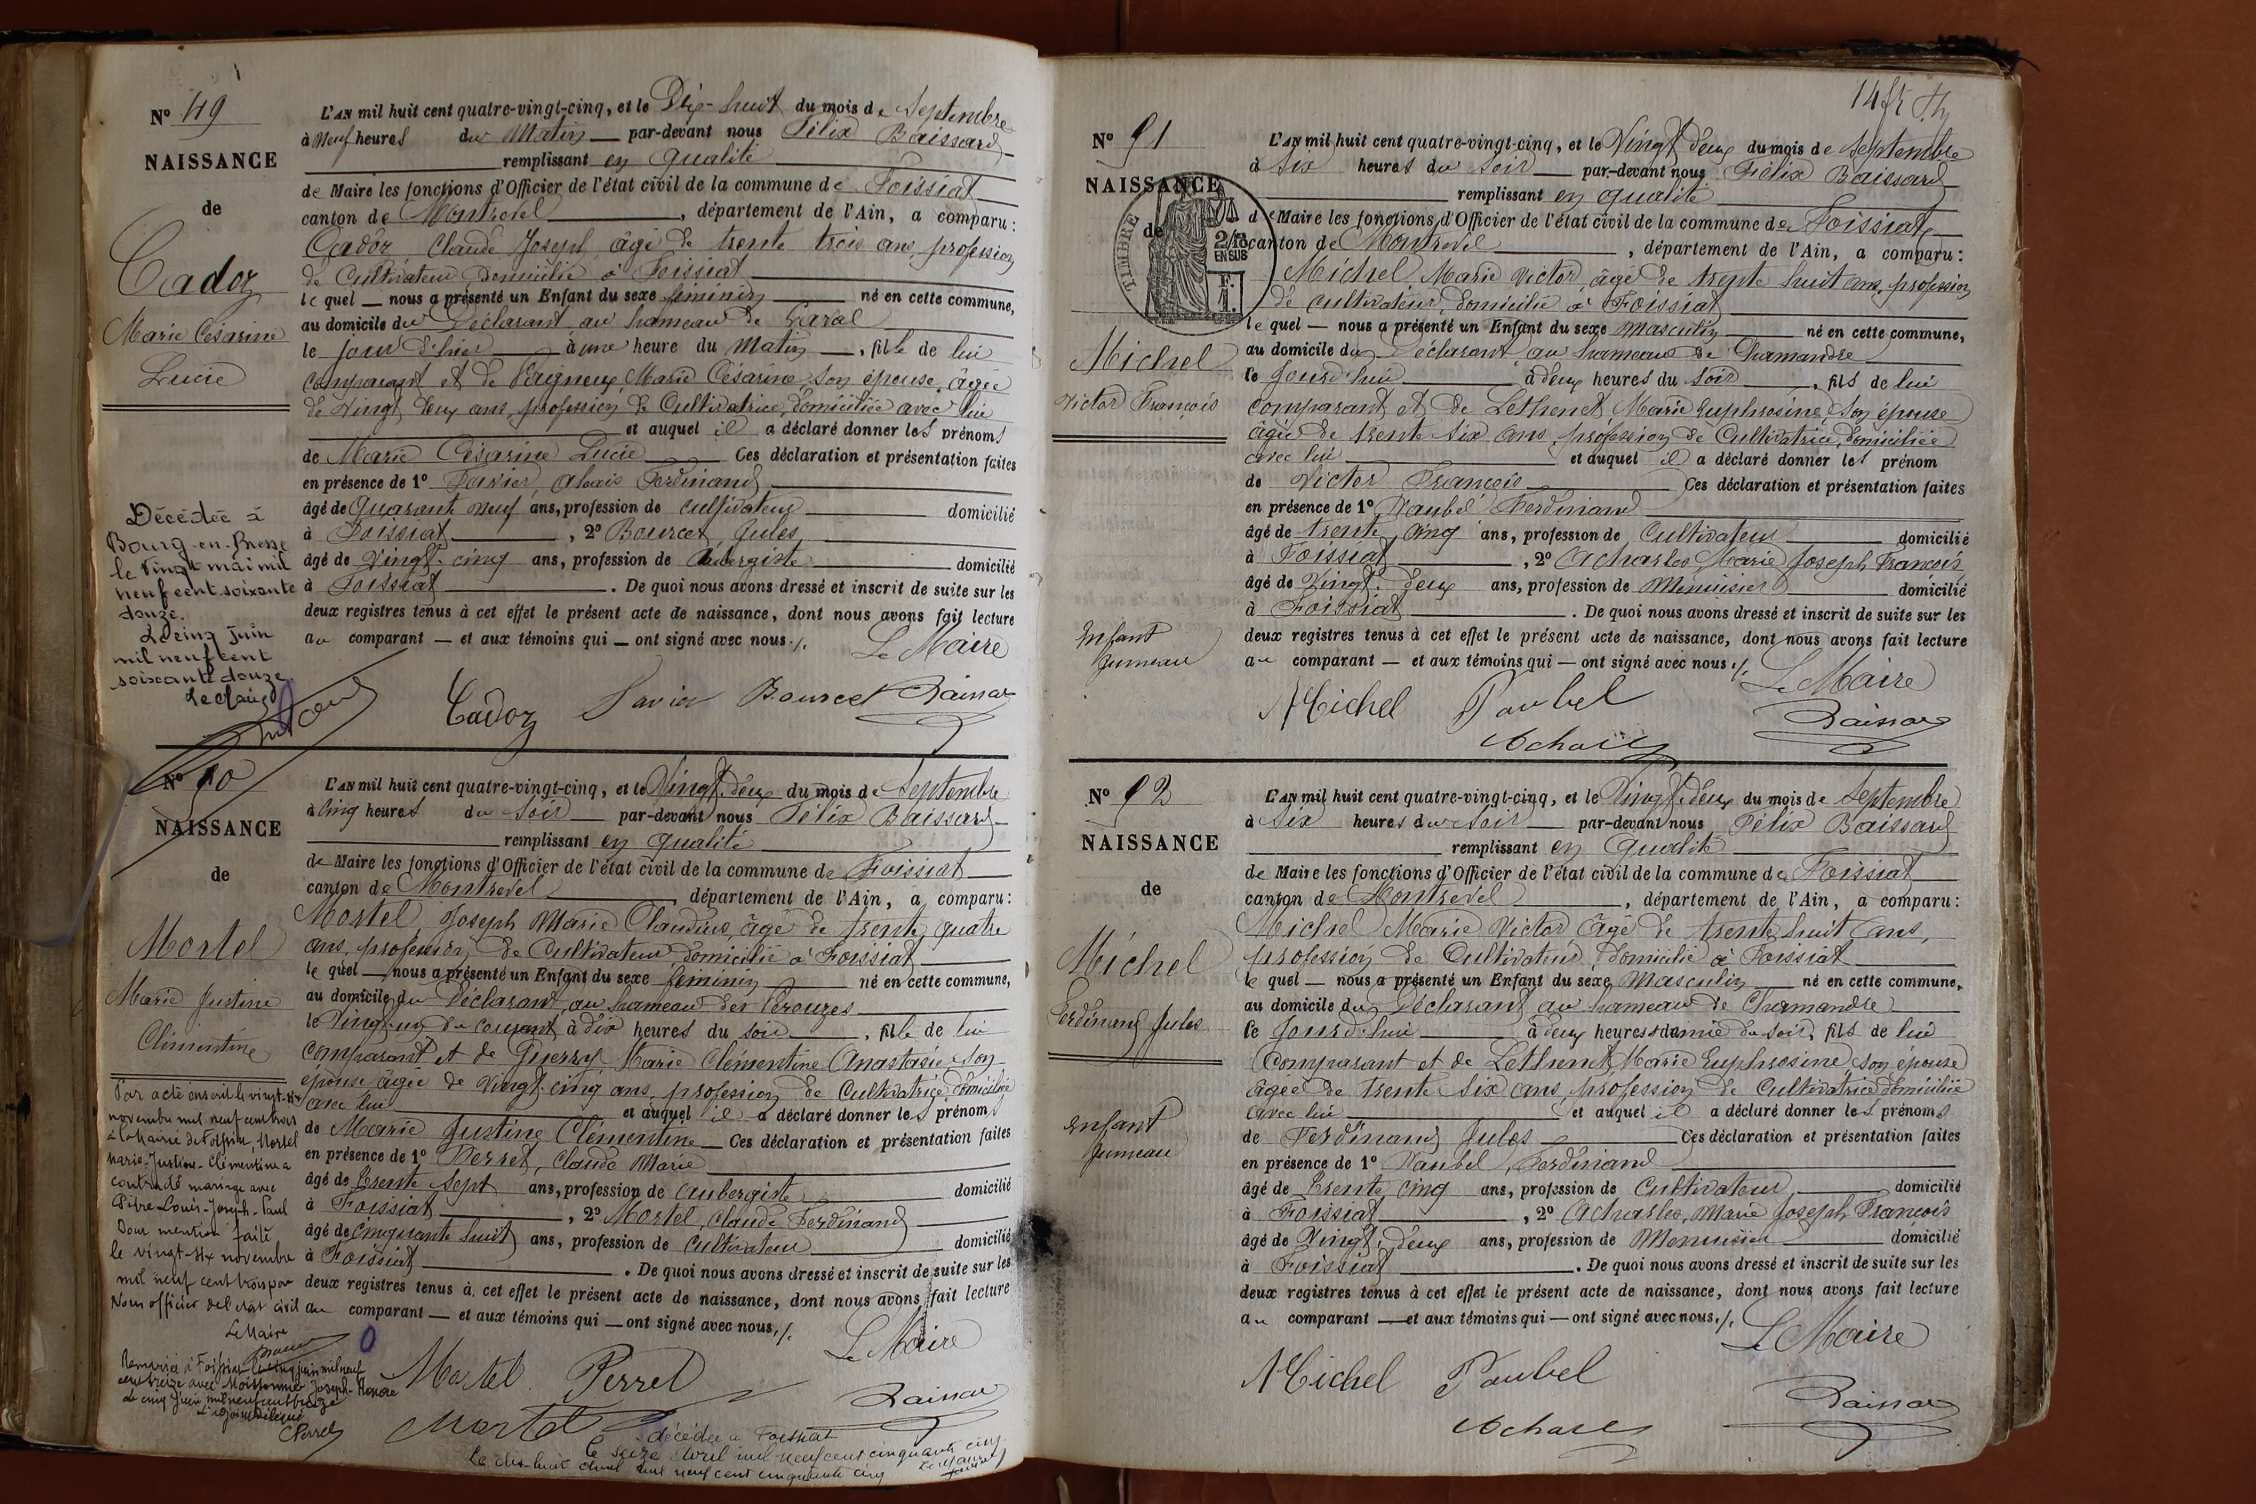 Nº 49
NAISSANCE
de
Cadoz
Marie Césarine
Lucie
Décédée à
Bourg-en-Bresse
le vingt mai mil
neuf cent soixante
douze.
Le cinq Juin
mil neuf cent
soixante douze.
L'AN mil huit cent quatre-vingt-cinq, et le Dix-huit du mois de Septembre
à Neuf heures du Matin par-devant nous Félix Baissard
remplissant en qualité
de Maire les fonctions d'Officier de l'état civil de la commune de Foissiat
canton de Montrevel, département de l'Ain, a comparu :
Cadoz Claude Joseph âgé de trente trois ans, profession
de Cultivateur domicilié à Foissiat
le quel nous a présenté un Enfant du sexe féminin né en cette commune,
au domicile du Déclarant au hameau de
le jour d'hier à une heure du matin, fille de lui
comparant et de Marie Césarine son épouse, âgée
de Vingt deux ans, profession de Cultivatrice, domiciliée avec lui
et auquel il a déclaré donner les prénoms
de Marie Césarine Lucie Ces déclaration et présentation faites
en présence de 1º Alexis Ferdinand
âgé de Quarante neuf ans, profession de cultivateur domicilié
à Foissiat, 2º Bourcet, Jules
âgé de Vingt-cinq ans, profession de Aubergiste domicilié
à Foissiat. De quoi nous avons dressé et inscrit de suite sur les
deux registres tenus à cet effet le présent acte de naissance, dont nous avons fait lecture
au comparant et aux témoins qui ont signé avec nous ./.
Le Maire
Cadoz Bourcet
Nº 50
NAISSANCE
de
Mortel
Marie Justine
Clémentine
Par acte inscrit le vingt-six
novembre mil neuf cent trois
à la Mairie de Foissiat, Mortel
Marie-Justine-Clémentine a
contracté mariage avec
Louis-Joseph-Paul
Dont mention faite
le vingt-six novembre
mil neuf cent trois par
Nous officier de l'état civil
Le Maire
Remariée à Foissiat le cinq juin mil neuf
cent treize avec Moissonnier Joseph-Honoré
Le cinq Juin mil neuf cent treize
Perret
L'AN mil huit cent quatre-vingt-cinq, et le Vingt deux du mois de Septembre
à Cinq heures du Soir par-devant nous Félix Baissard
remplissant en qualité
de Maire les fonctions d'Officier de l'état civil de la commune de Foissiat
canton de Montrevel département de l'Ain, a comparu :
Mortel Joseph Marie Claudius âgé de trente quatre
ans, profession de Cultivateur domicilié à Foissiat
le quel nous a présenté un Enfant du sexe féminin né en cette commune,
au domicile du Déclarant au hameau des
le Vingt-un du courant à dix heures du soir, fille de lui
comparant et de Guerry, Marie Clémentine Anastasie son
épouse âgée de vingt-cinq ans, profession de Cultivatrice, domiciliée
avec lui et auquel il a déclaré donner les prénoms
de Marie Justine Clémentine Ces déclaration et présentation faites
en présence de 1º Perret, Claude Marie
âgé de Trente sept ans, profession de aubergiste domicilié
à Foissiat, 2º Mortel, Claude Ferdinand
âgé de cinquante huit ans, profession de cultivateur domicilié
à Foissiat. De quoi nous avons dressé et inscrit de suite sur les
deux registres tenus à cet effet le présent acte de naissance, dont nous avons fait lecture
au comparant et aux témoins qui ont signé avec nous, ./.
Le Maire
Mortel Perret
Mortel
décédée à Foissiat
le seize avril mil neuf cent cinquante cinq
Le dix-huit avril mil neuf cent cinquante cinq
Nº 51
NAISSANCE
de
TIMBRE
2/10
EN SUS
F.
1.
Michel
Victor François
Enfant
Jumeau
L'AN mil huit cent quatre-vingt-cinq, et le Vingt deux du mois de Septembre
à Six heures du Soir par-devant nous Félix Baissard
remplissant en qualité
de Maire les fonctions d'Officier de l'état civil de la commune de Foissiat
canton de Montrevel, département de l'Ain, a comparu :
Michel Marie Victor, âgé de trente huit ans, profession
de cultivateur domicilié à Foissiat
le quel nous a présenté un Enfant du sexe masculin né en cette commune,
au domicile du Déclarant au hameau de Chamandre
le Jourd'hui à deux heures du soir, fils de lui
comparant et de Lethenet Marie Euphrosine, son épouse
âgée de trente six ans, profession de Cultivatrice, domiciliée
avec lui et auquel il a déclaré donner les prénom
de Victor François Ces déclaration et présentation faites
en présence de 1º Paubel Ferdinand
âgé de trente cinq ans, profession de Cultivateur domicilié
à Foissiat, 2º Acharles, Marie Joseph François
âgé de Vingt-deux ans, profession de Menuisier domicilié
à Foissiat. De quoi nous avons dressé et inscrit de suite sur les
deux registres tenus à cet effet le présent acte de naissance, dont nous avons fait lecture
au comparant et aux témoins qui ont signé avec nous ./.
Le Maire
Michel Paubel
Nº 52
NAISSANCE
de
Michel
Ferdinand Jules
Enfant
Jumeau
L'AN mil huit cent quatre-vingt-cinq, et le Vingt-deux du mois de Septembre
à Six heures du Soir par-devant nous Félix Baissard
remplissant en qualité
de Maire les fonctions d'Officier de l'état civil de la commune de Foissiat
canton de Montrevel, département de l'Ain, a comparu :
Michel Marie Victor âgé de trente huit ans,
profession de Cultivateur, domicilié à Foissiat
le quel nous a présenté un Enfant du sexe Masculin né en cette commune,
au domicile du Déclarant au hameau de Chamandre
le Jourd'hui à deux heures et demie du soir, fils de lui
Comparant et de Lethenet, Marie Euphrosine son épouse
âgée de trente six ans, profession de Cultivatrice domiciliée
avec lui et auquel il a déclaré donner les prénoms
de Ferdinand Jules Ces déclaration et présentation faites
en présence de 1º Paubel, Ferdinand
âgé de Trente cinq ans, profession de Cultivateur domicilié
à Foissiat, 2º Acharles, Marie Joseph François
âgé de Vingt-deux ans, profession de Menuisier domicilié
à Foissiat. De quoi nous avons dressé et inscrit de suite sur les
deux registres tenus à cet effet le présent acte de naissance, dont nous avons fait lecture
au comparant et aux témoins qui ont signé avec nous ./.
Le Maire
Michel Paubel